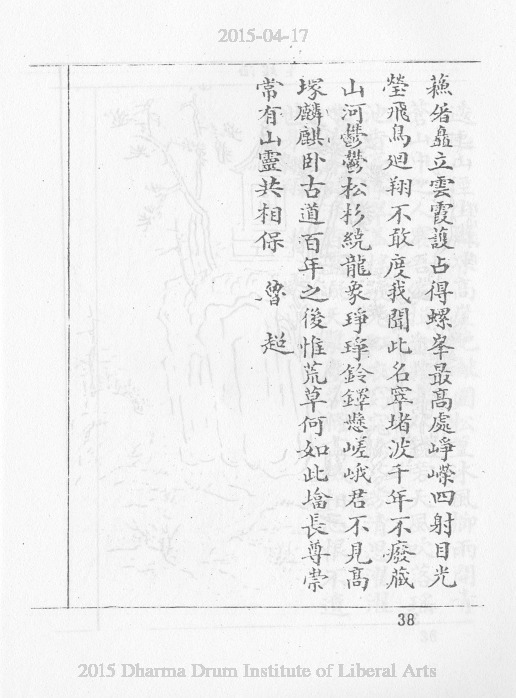 2015-04-17
蘓砦矗立雲霞護占得螺峯最高處崢嶸四射目光
瑩飛鳥廻翔不敢度我聞此名窣堵波千年不廢藏
山河鬱鬱松杉繞龍象琤琤鈴鐸懸嵯峨君不見高
塚麒麟臥古道百年之後惟荒草何如此墖長尊崇
常有山靈共相保 魯超
38
2015 Dharma Drum Institute of Liberal Arts